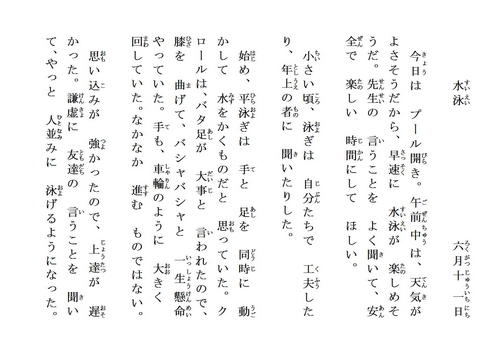 水泳　六月十一日
今日は プール開き。午前中は、天気が
よさそうだから、早速に 水泳が 楽しめそ
うだ。先生の 言うことを よく聞いて、安
全で 楽しい 時間にして ほしい。
小さい頃、泳ぎは 自分たちで 工夫した
り、年上の者に 聞いたりした。
始め、平泳ぎは 手と 足を 同時に 動
かして 水をかくものだと 思っていた。ク
ロールは、バタ足が 大事と 言われたので、
膝を 曲げて、バシャバシャと 一生懸命
やっていた。手も、車輪のように 大きく
回していた。なかなか 進む ものではない。
思い込みが 強かったので、上達が 遅
かった。謙虚に 友達の 言うことを 聞い
て、やっと 人並みに 泳げるようになった。